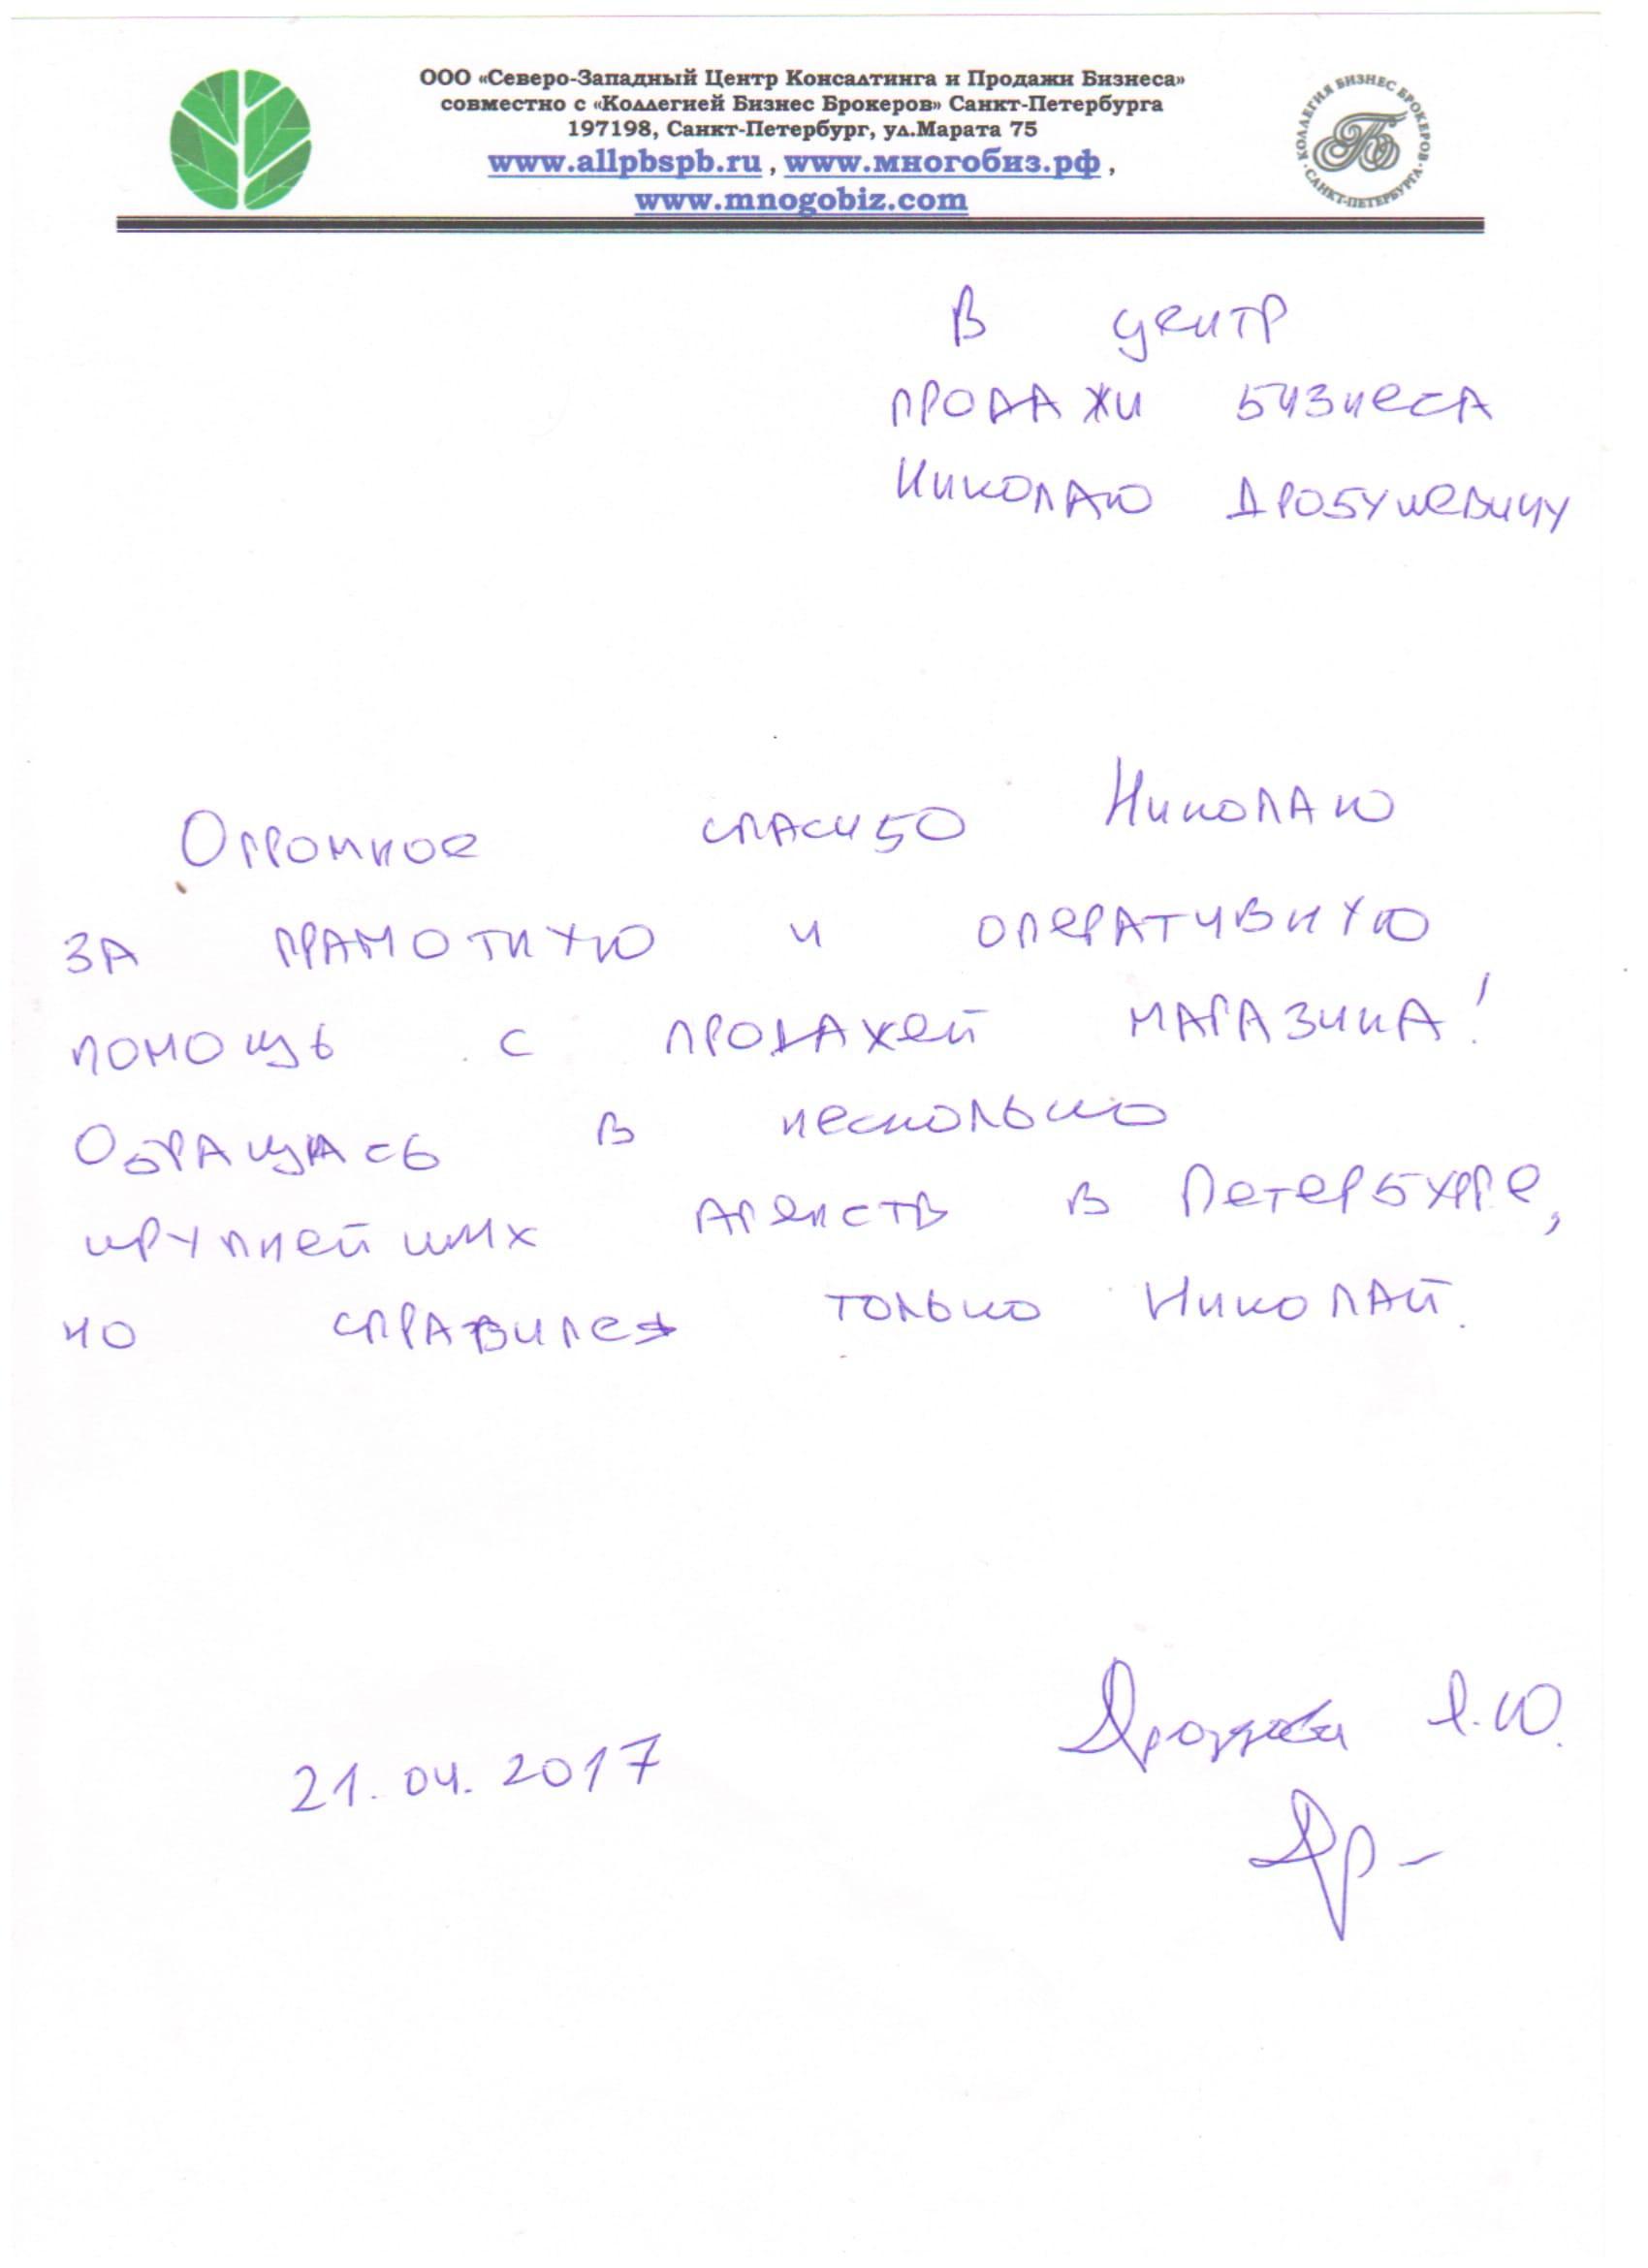 ООО «Северо-Западный Центр Консалтинга и Продажи Бизнеса»
совместно с «Коллегией Бизнес Брокеров» Санкт-Петербурга
197198, Санкт-Петербург, ул.Марата 75
www.allpbspb.ru , www.многобиз.рф ,
www.mnogobiz.com
КОЛЛЕГИЯ БИЗНЕС БРОКЕРОВ · САНКТ-ПЕТЕРБУРГА ·
В центр
продажи бизнеса
Николаю Дробушевичу
Огромное спасибо Николаю
за грамотную и оперативную
помощь с продажей магазина!
Обращась в несколько
крупнейших агенств в Петербурге,
но справился только Николай.
21.04.2017
Дроздова Я.Ю.